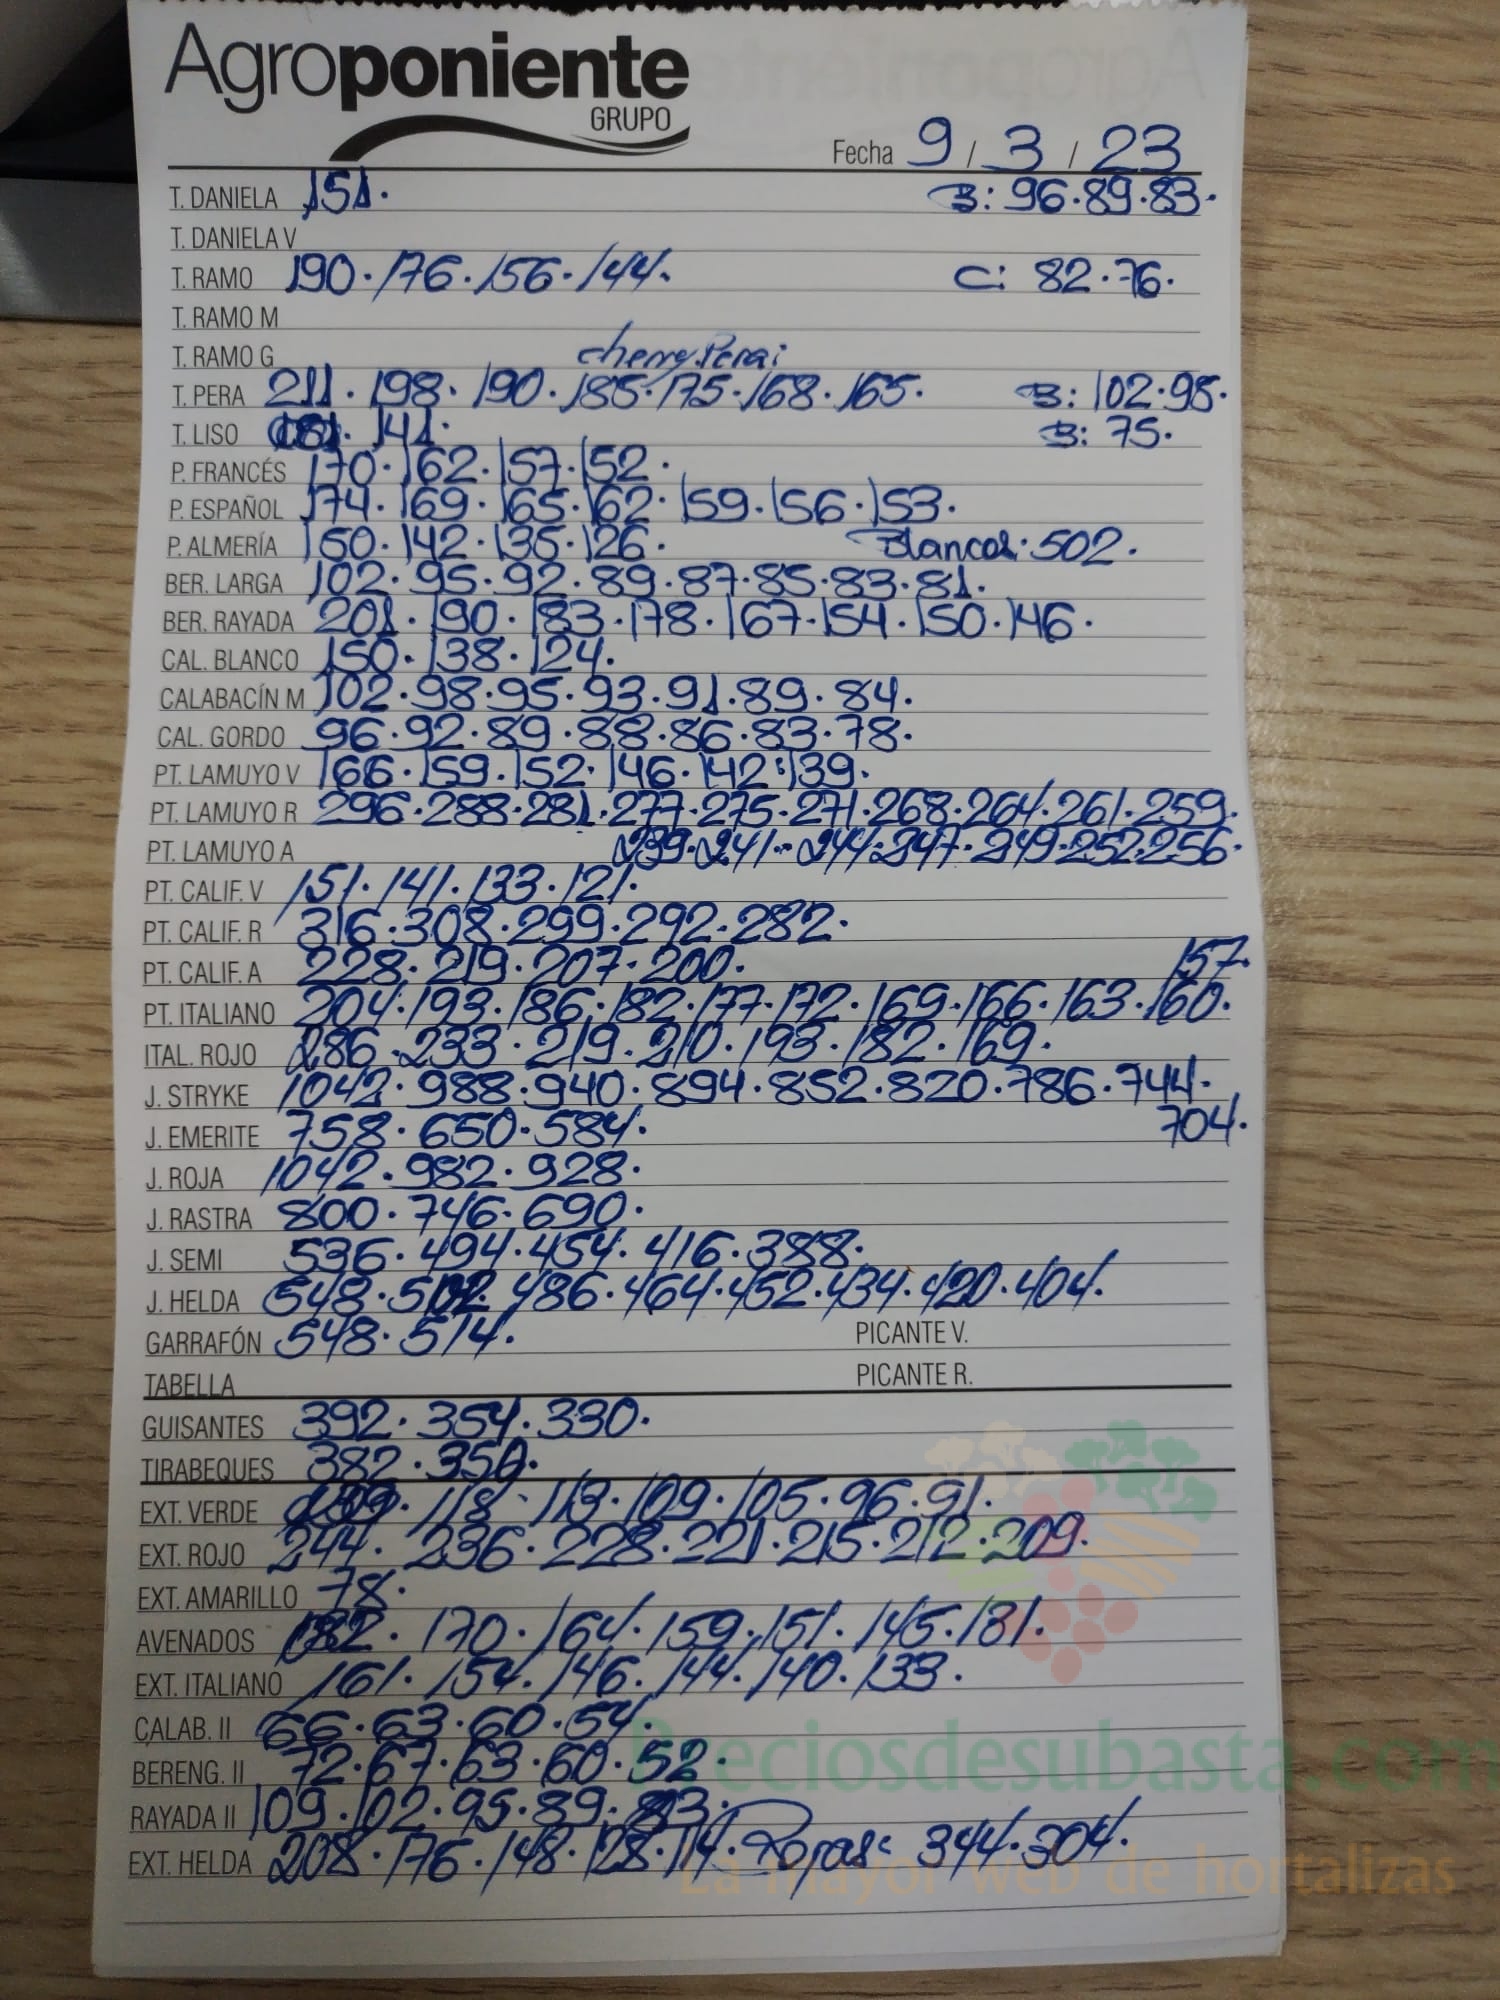 Agroponiente
GRUPO
Fecha 9 / 3 / 23
T. DANIELA 151. B: 96.89.83.
T. DANIELA V
T. RAMO 190.176.156.144. C: 82.76.
T. RAMO M
T. RAMO G cherry Pera:
T. PERA 211.198.190.185.175.168.165. B: 102.95.
T. LISO 141. B: 75.
P. FRANCÉS 170.162.157.152.
P. ESPAÑOL 174.169.165.162.159.156.153.
P. ALMERÍA 150.142.135.126. Blancos: 502.
BER. LARGA 102.95.92.89.87.85.83.81.
BER. RAYADA 201.190.183.178.167.154.150.146.
CAL. BLANCO 150.138.124.
CALABACÍN M 102.98.95.93.91.89.84.
CAL. GORDO 96.92.89.88.86.83.78.
PT. LAMUYO V 166.159.152.146.142.139.
PT. LAMUYO R 296.288.281.277.275.271.268.264.261.259.
PT. LAMUYO A 239.241.244.247.249.252.256.
PT. CALIF. V 151.141.133.121.
PT. CALIF. R 316.308.299.292.282.
PT. CALIF. A 228.219.207.200. 157.
PT. ITALIANO 204.193.186.182.177.172.169.166.163.160.
ITAL. ROJO 286.233.219.210.193.182.169.
J. STRYKE 1042.988.940.894.852.820.786.744.
J. EMERITE 758.650.584. 704.
J. ROJA 1042.982.928.
J. RASTRA 800.746.690.
J. SEMI 536.494.454.416.388.
J. HELDA 548.502.486.464.452.434.420.404.
GARRAFÓN 548.514. PICANTE V.
TABELLA PICANTE R.
GUISANTES 392.354.330.
TIRABEQUES 382.350.
EXT. VERDE 118.113.109.105.96.91.
EXT. ROJO 244.236.228.221.215.212.209.
EXT. AMARILLO 78.
AVENADOS 182.170.164.159.151.145.131.
EXT. ITALIANO 161.154.146.144.140.133.
CALAB. II 66.63.60.54.
BERENG. II 72.67.63.60.52.
Preciosdesubasta.com
RAYADA II 109.102.95.89.83.
EXT. HELDA 208.176.148.128.114. Rojas: 344.304.
La mayor web de hortalizas